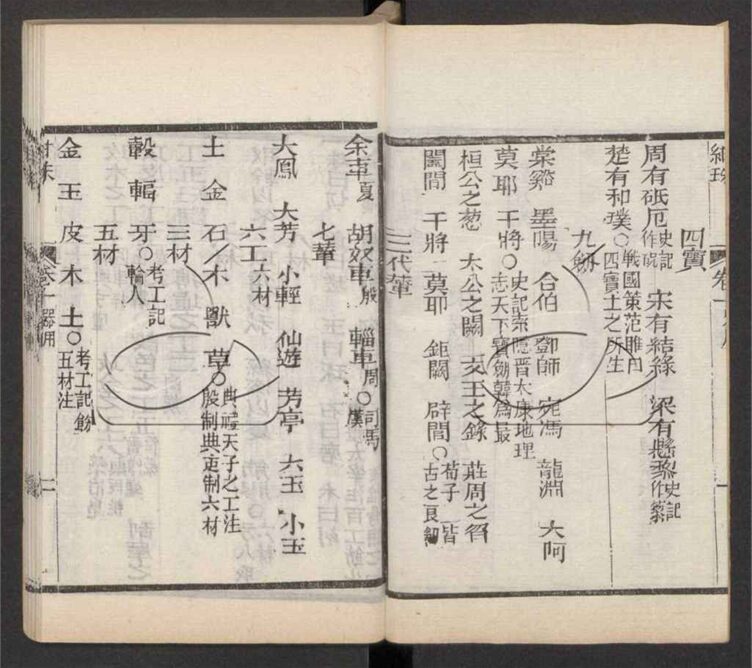 四寶
周有砥厄史記作砨 宋有結緣 梁有懸黎史記作縣黎
楚有和璞○戰國策范雎曰四寶土之所生
九劍
棠谿 墨陽 合伯 鄧師 宛馮 龍淵 大阿
莫耶 干將○史記索隱晋太康地理志天下寶劍韓爲最
桓公之葱 太公之闕 文王之錄 莊周之曶
闔閭 干將 莫耶 鉅闕 辟閭○荀子 皆古之良劍
三代輦
余車夏 胡奴車殷 輜車周○司馬
七輦
大鳳 大芳 小輕 仙遊 芳亭 大玉 小玉
六工六材
土 金 石 木 獸 草○典禮天子之工注殷制典定制六材
三材
轂 輻 牙○考工記輪人
五材
金 玉 皮 木 土○考工記飭五材注
卷十器用
二